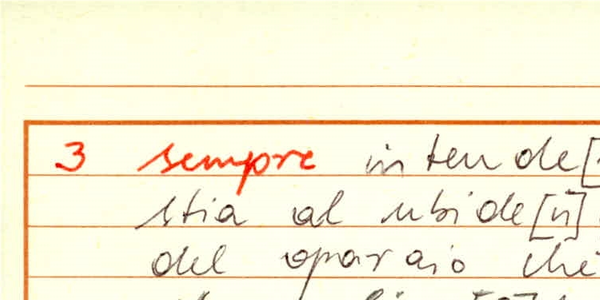 3 sempre intende[
stia al ubide[n]
del oparaio che